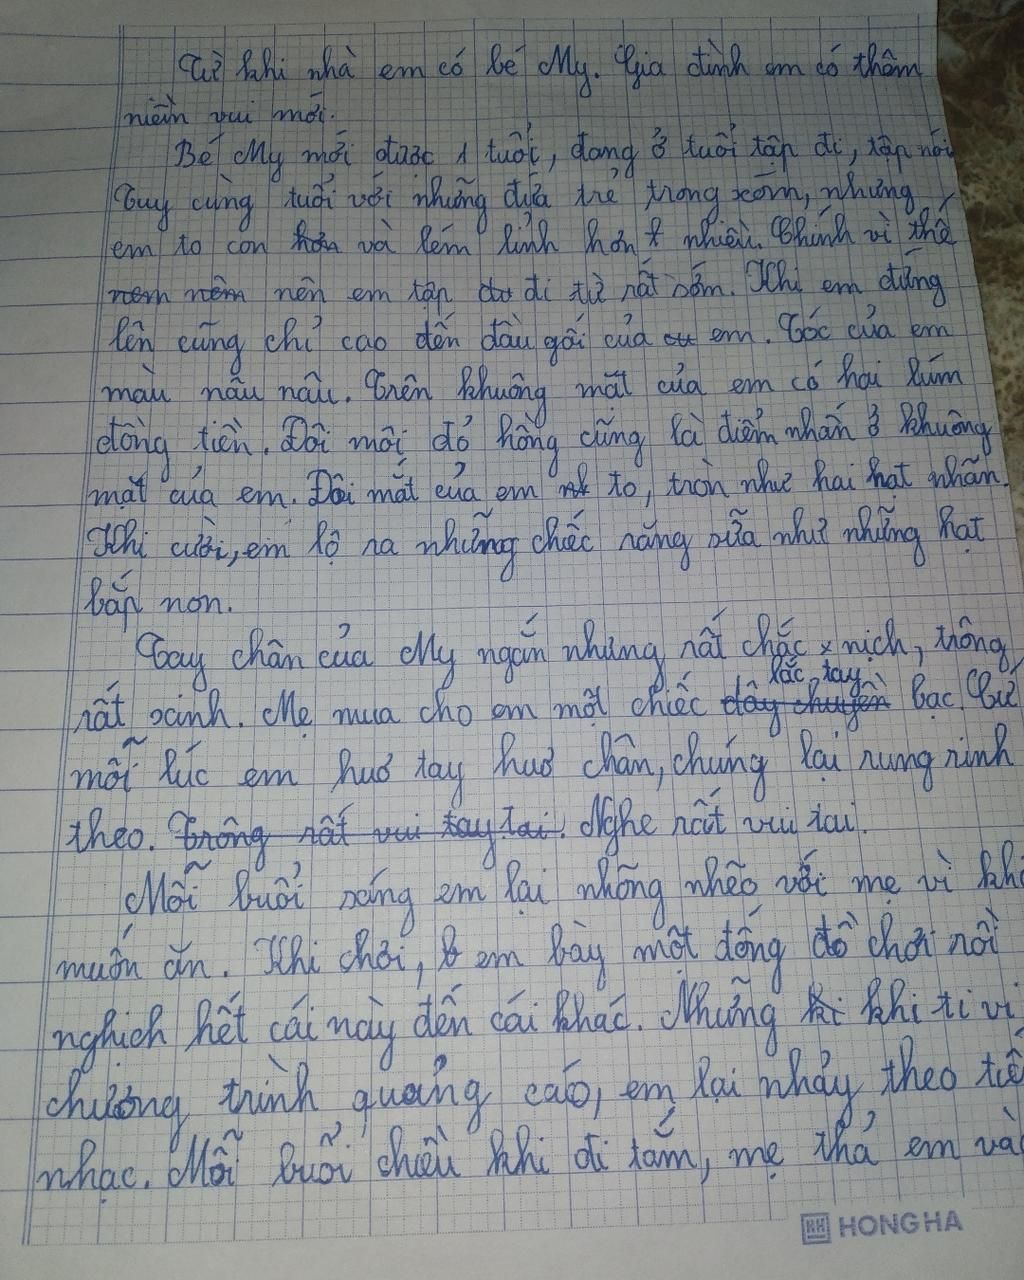 Từ khi nhà em có bé My. Gia đình em có thêm
niềm vui mới.
Bé My mới được 1 tuổi, đang ở tuổi tập đi, tập nói
Tuy cùng tuổi với những đứa trẻ trong xóm, nhưng
em to con hơn và lém lỉnh hơn nhiều. Chính vì thế
nem nêm nên em tập đi từ rất sớm. Khi em đứng
lên cũng chỉ cao đến đầu gối của em. Tóc của em
màu nâu nâu. Trên khuông mặt của em có hai lúm
đồng tiền. Đôi môi đỏ hồng cũng là điểm nhấn ở khuông
mặt của em. Đôi mắt của em to, tròn như hai hạt nhãn.
Khi cười, em lộ ra những chiếc răng sữa như những hạt
bắp non.
Tay chân của My ngắn nhưng rất chắc nịch, trông
lắc tay
rất xinh. Mẹ mua cho em một chiếc dây chuyền bạc. Cứ
mỗi lúc em huơ tay huơ chân, chúng lại rung rinh
theo. Trông rất vui tay tai. Nghe rất vui tai.
Mỗi buổi sáng em lại nhõng nhẽo với mẹ vì
muốn ăn. Khi chơi, em bày một đống đồ chơi rồi
nghịch hết cái này đến cái khác. Nhưng khi ti vi
chương trình quảng cáo, em lại nhảy theo
nhạc. Mỗi buổi chiều khi đi tắm, mẹ thả em
HONG HA